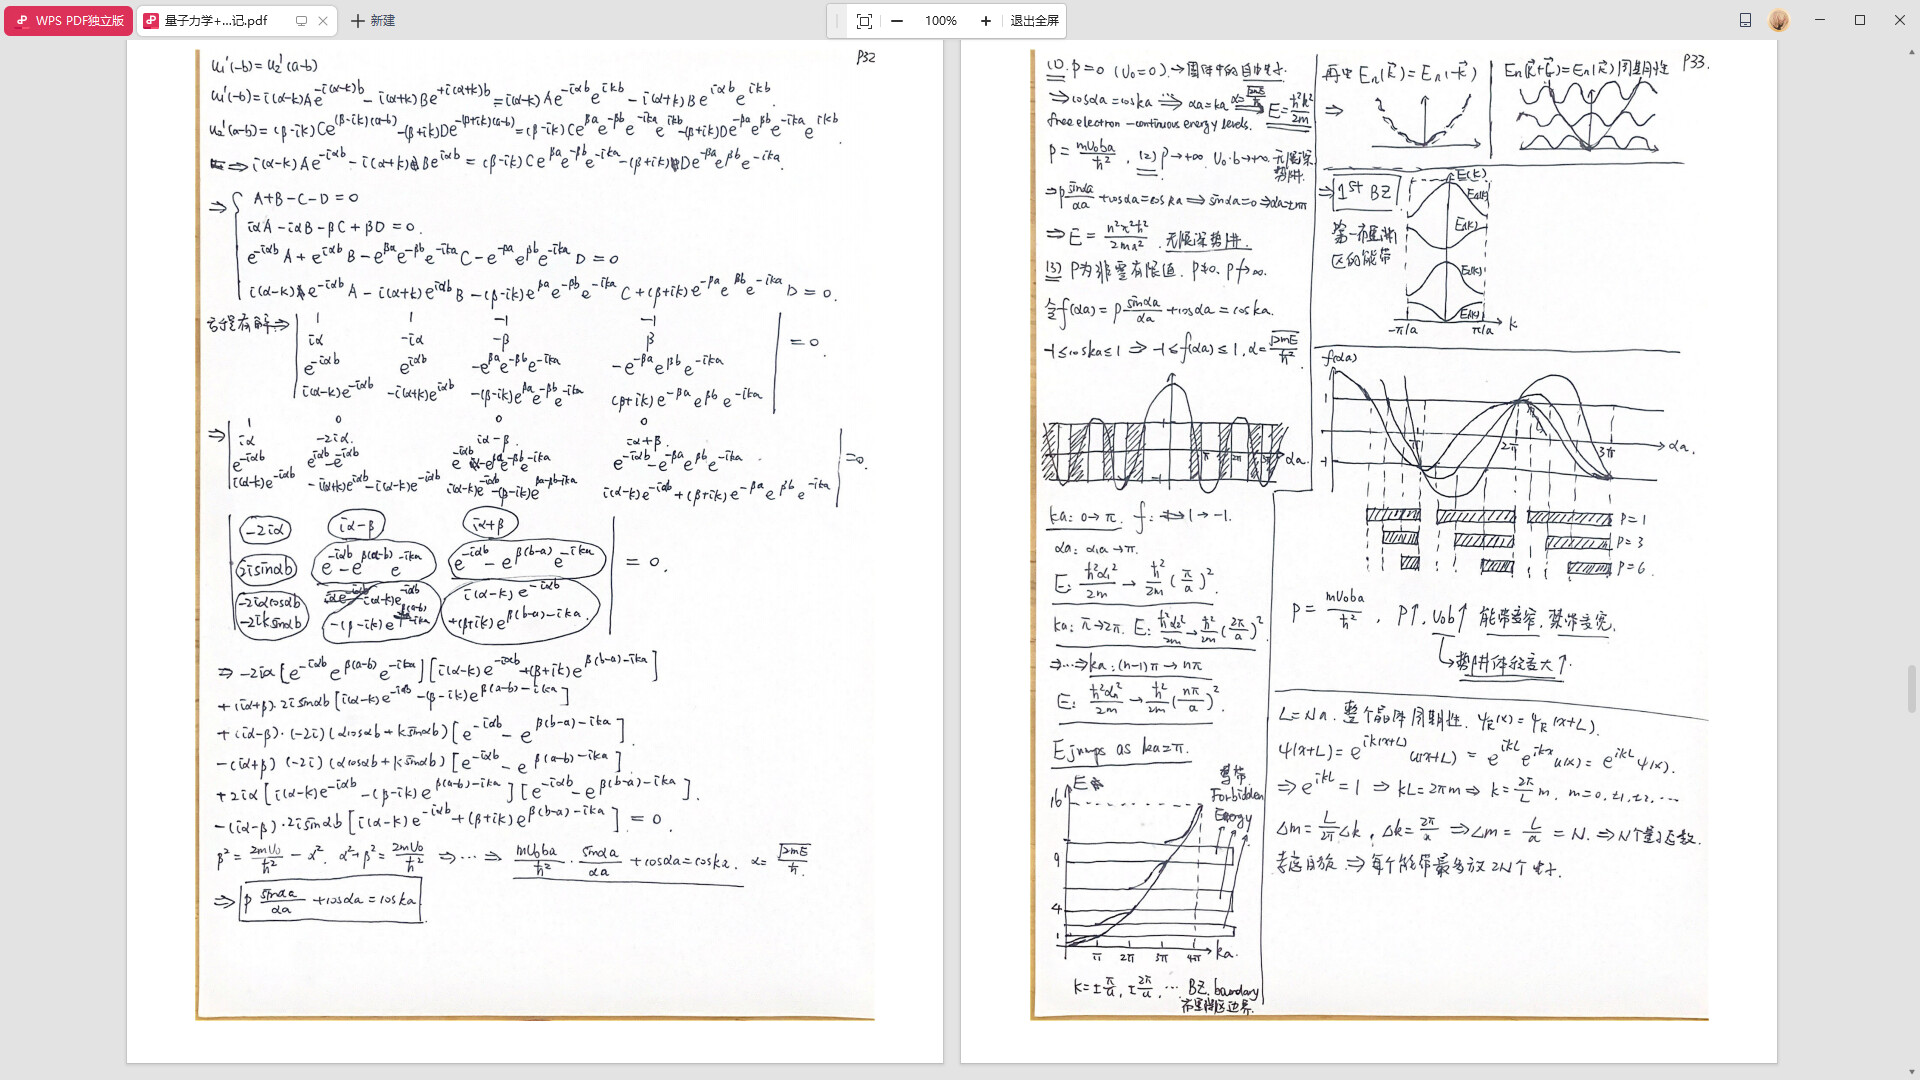 WPS PDF独立版
量子力学+...记.pdf
新建
100%
退出全屏
P32
u₁'(-b)=u₂'(a-b)
u₁'(-b)=i(α-k)Ae^{-i(α-k)b}-i(α+k)Be^{+i(α+k)b}=i(α-k)Ae^{-iαb}e^{ikb}-i(α+k)Be^{iαb}e^{ikb}.
u₂'(a-b)=(β-ik)Ce^{(β-ik)(a-b)}-(β+ik)De^{-(β+ik)(a-b)}=(β-ik)Ce^{βa}e^{-βb}e^{-ika}e^{ikb}-(β+ik)De^{-βa}e^{βb}e^{-ika}e^{ikb}.
⇒ i(α-k)Ae^{-iαb}-i(α+k)Be^{iαb}=(β-ik)Ce^{βa}e^{-βb}e^{-ika}-(β+ik)De^{-βa}e^{βb}e^{-ika}.
⇒ { A+B-C-D=0
iαA-iαB-βC+βD=0.
e^{-iαb}A+e^{iαb}B-e^{βa}e^{-βb}e^{-ika}C-e^{-βa}e^{βb}e^{-ika}D=0
i(α-k)e^{-iαb}A-i(α+k)e^{iαb}B-(β-ik)e^{βa}e^{-βb}e^{-ika}C+(β+ik)e^{-βa}e^{βb}e^{-ika}D=0.
⇒ | 1 1 -1 -1
iα -iα -β β | =0.
e^{-iαb} e^{iαb} -e^{βa}e^{-βb}e^{-ika} -e^{-βa}e^{βb}e^{-ika}
i(α-k)e^{-iαb} -i(α+k)e^{iαb} -(β-ik)e^{βa}e^{-βb}e^{-ika} (β+ik)e^{-βa}e^{βb}e^{-ika}
⇒ | 1 0 0 0
iα -2iα. iα-β. iα+β.
e^{-iαb} e^{iαb}-e^{-iαb} e^{-iαb}-e^{βa}e^{-βb}e^{-ika} e^{-iαb}-e^{-βa}e^{βb}e^{-ika} | =0.
i(α-k)e^{-iαb} -i(α+k)e^{iαb}-i(α-k)e^{-iαb} i(α-k)e^{-iαb}-(β-ik)e^{βa-βb-ika} i(α-k)e^{-iαb}+(β+ik)e^{-βa}e^{βb}e^{-ika}
| -2iα iα-β iα+β
2isinαb e^{-iαb}-e^{β(a-b)}e^{-ika} e^{-iαb}-e^{β(b-a)}e^{-ika} | =0.
-2iαcosαb i(α-k)e^{-iαb} i(α-k)e^{-iαb}
-2iksinαb -(β-ik)e^{β(a-b)-ika} +(β+ik)e^{β(b-a)-ika}.
⇒ -2iα[e^{-iαb}e^{β(a-b)}e^{-ika}][i(α-k)e^{-iαb}+(β+ik)e^{β(b-a)-ika}]
+(iα+β)·2isinαb[i(α-k)e^{-iαb}-(β-ik)e^{β(a-b)-ika}]
+(iα-β)·(-2i)(αcosαb+ksinαb)[e^{-iαb}-e^{β(b-a)-ika}].
-(iα+β)(-2i)(αcosαb+ksinαb)[e^{-iαb}-e^{β(a-b)-ika}]
+2iα[i(α-k)e^{-iαb}-(β-ik)e^{β(a-b)-ika}][e^{-iαb}-e^{β(b-a)-ika}].
-(iα-β)·2isinαb[i(α-k)e^{-iαb}+(β+ik)e^{β(b-a)-ika}]=0.
β²=2mU₀/ħ²-α². α²+β²=2mU₀/ħ² ⇒···⇒ mU₀ba/ħ²·sinαa/αa+cosαa=coska. α=√2mE/ħ.
⇒ P sinαa/αa+cosαa=coska.
P33.
(1). P=0 (U₀=0).→固体中的自由电子.
⇒cosαa=coska ⇒ αa=ka ⇒ E=ħ²k²/2m
free electron -continuous energy levels.
P=mU₀ba/ħ². (2) P→+∞. U₀·b→+∞. 无限深势阱.
⇒P sinαa/αa+cosαa=coska ⇒sinαa=0⇒αa=±nπ
⇒E=n²π²ħ²/2ma². 无限深势阱.
(3) P为非零有限值. P≠0. P↛∞.
令f(αa)=P sinαa/αa+cosαa=coska.
-1≤coska≤1 ⇒ -1≤f(αa)≤1, α=√2mE/ħ².
1
-1
π
2π
3π
αa.
ka: 0→π. f: 1→-1.
αa: α₁a→π.
E: ħ²α₁²/2m→ħ²/2m(π/a)².
ka: π→2π. E: ħ²α₂²/2m→ħ²/2m(2π/a)².
⇒···⇒ka: (n-1)π→nπ
E: ħ²αₙ²/2m→ħ²/2m(nπ/a)².
E jumps as ka=π.
E
禁带
Forbidden
Energy
16
9
4
1
π 2π 3π 4π ka.
k=±π/a, ±2π/a, ··· BZ. boundary
布里渊区边界.
再由Eₙ(k⃗)=Eₙ(-k⃗)
⇒
Eₙ(k⃗+G⃗)=Eₙ(k⃗)周期性
⇒ 1st BZ
第一布里渊
区的能带
E(k)
E₄(k)
E₃(k)
E₂(k)
E₁(k)
-π/a π/a k
f(αa)
1
-1
π
2π
3π
αa.
P=1
P=3
P=6.
P=mU₀ba/ħ². P↑. U₀b↑ 能带变窄. 禁带变宽.
↳势阱体积变大↑.
L=Na. 整个晶体周期性. ψₖ(x)=ψₖ(x+L).
ψ(x+L)=e^{ik(x+L)}u(x+L)=e^{ikL}e^{ikx}u(x)=e^{ikL}ψ(x).
⇒e^{ikL}=1 ⇒kL=2πm⇒k=2π/L m. m=0,±1,±2,···
Δm=L/2π Δk, Δk=2π/a ⇒Δm=L/a=N. ⇒N个量子态数.
考虑自旋 ⇒每个能带最多放2N个电子.